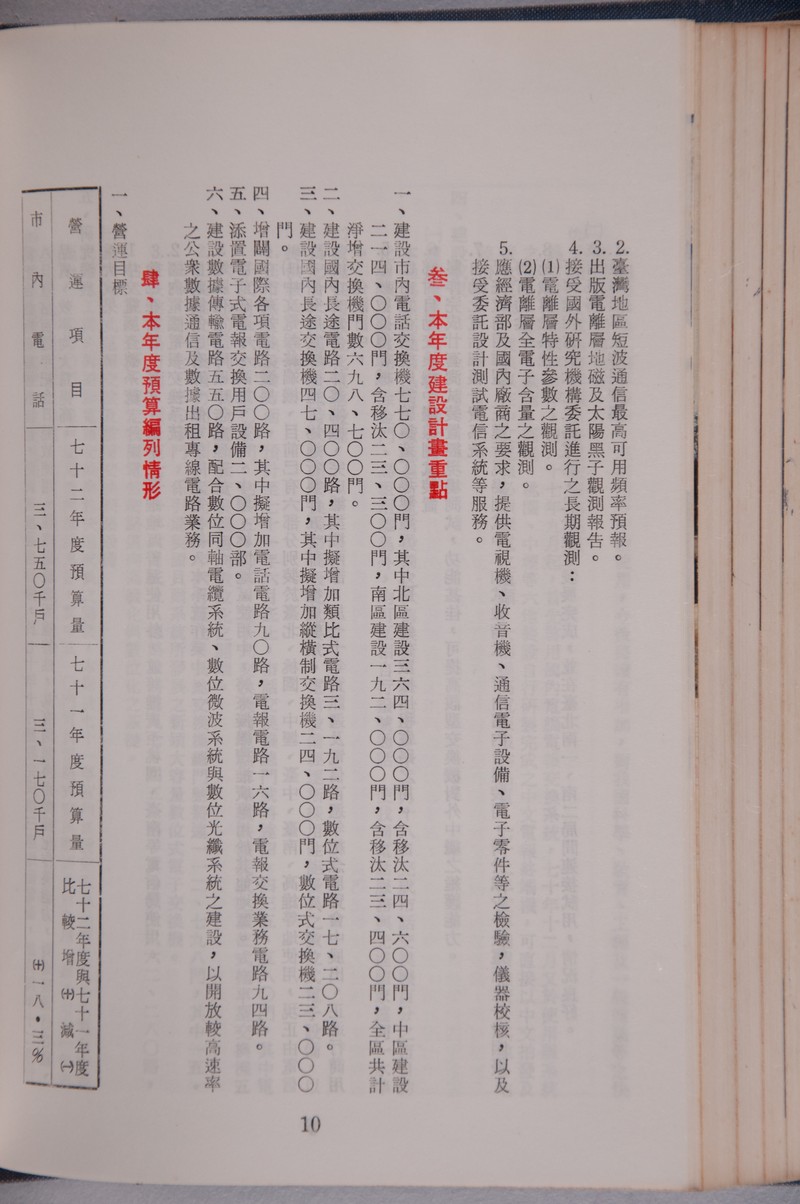 2.臺灣地區短波通信最高可用頻率預報。
3.出版電離層地磁及太陽黑子觀測報告。
4.接受國外研究機構委託進行之長期觀測：
(1)電離層特性參數之觀測。
(2)電離層全電子含量之觀測。
5.應經濟部及國內廠商之要求，提供電視機、收音機、通信電子設備、電子零件等之檢驗，儀器校核，以及
接受委託設計測試電信系統等服務。
叁、本年度建設計畫重點
一、建設市內電話交換機七七〇、〇〇〇門，其中北區建設三六四、〇〇〇門，含移汰二四、六〇〇門，中區建設
二一四、〇〇〇門，含移汰二三、三〇〇門，南區建設一九二、〇〇〇門，含移汰二三、四〇〇門，全區共計
淨增交換機門數六九八、七〇〇門。
二、建設國內長途電路二〇、四〇〇路，其中擬增加類比式電路三、一九二路，數位式電路一七、二〇八路。
三、建設國內長途交換機四七、〇〇〇門，其中擬增加縱橫制交換機二四、〇〇〇門，數位式交換機二三、〇〇〇
門。
四、增闢國際各項電路二〇〇路，其中擬增加電話電路九〇路，電報電路一六路，電報交換業務電路九四路。
五、添置電子式電報交換用戶設備二、〇〇〇部。
六、建設數據傳輸電路五五〇路，配合數位同軸電纜系統、數位微波系統與數位光纖系統之建設，以開放較高速率
之公衆數據通信及數據出租專線電路業務。
肆、本年度預算編列情形
一、營運目標
營運項目
七十二年度預算量
七十一年度預算量
七十二年度與七十一年度
比較增(+)減(一)
市內電話
三、七五〇千戶
三、一七〇千戶
(+)一八・三%
10